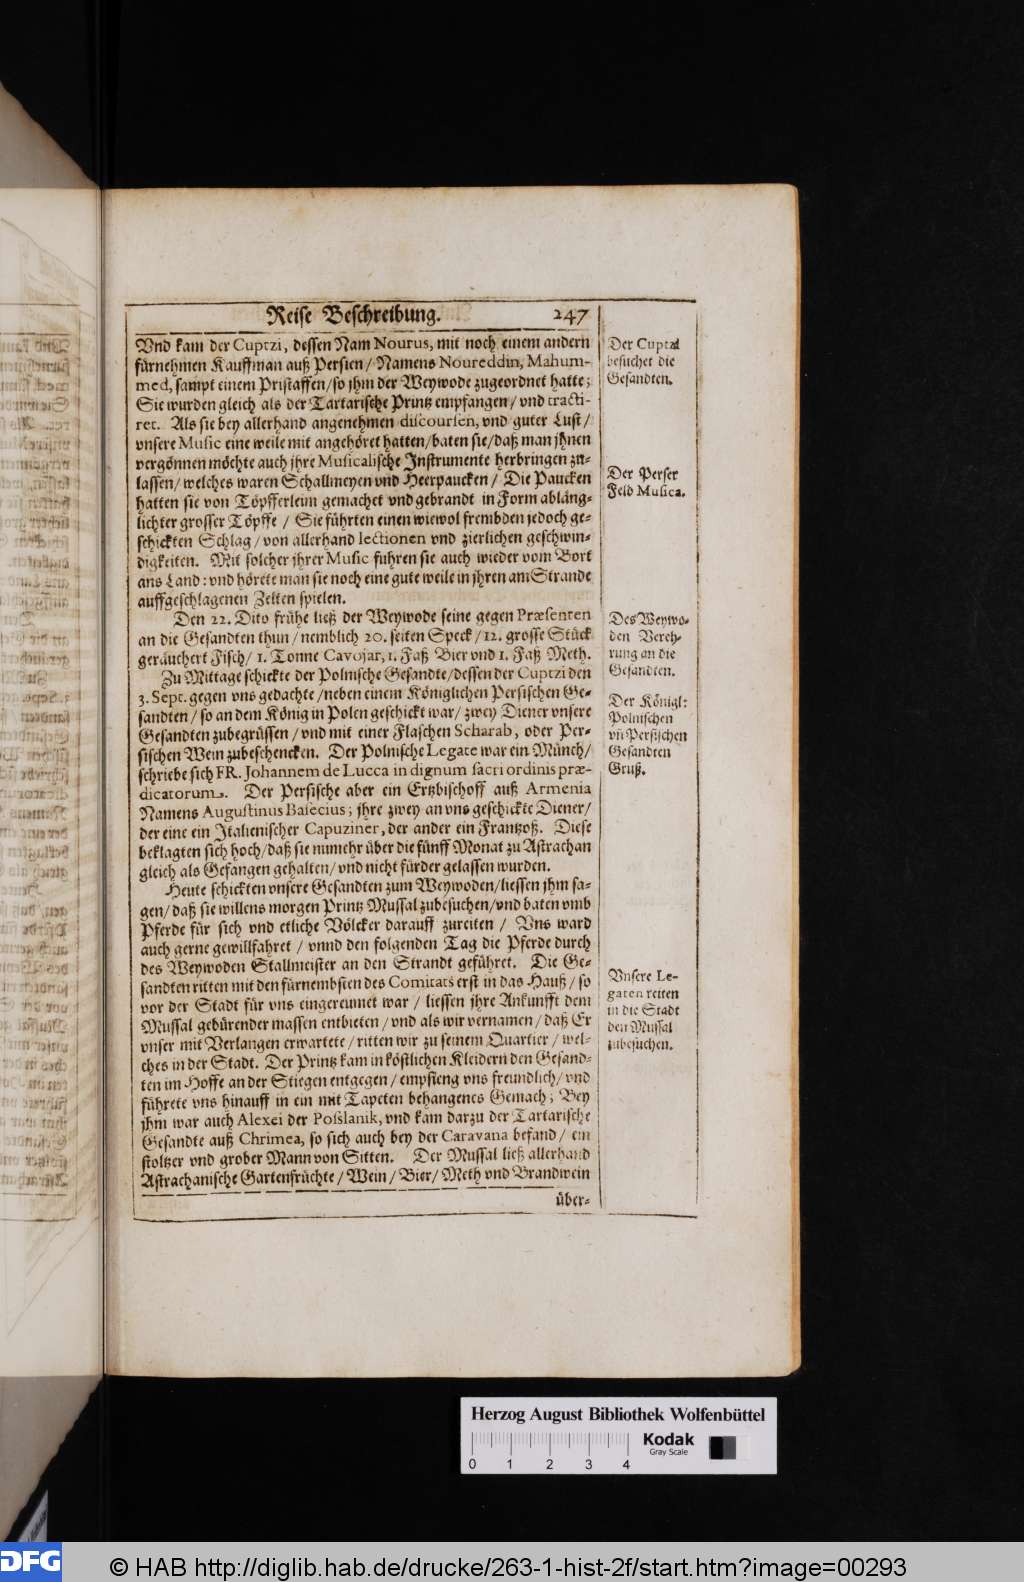 Reise Beschreibung. 247
Vnd kam der Cuptzi, dessen Nam Nourus, mit noch einem andern
fürnehmen Kauffman auß Persien / Namens Noureddin, Mahum-
med, sampt einem Pristaffen / so jhm der Weywode zugeordnet hatte;
Sie wurden gleich als der Tartarische Printz empfangen / vnd tracti-
ret. Als sie bey allerhand angenehmen discoursen, vnd guter Lust /
vnsere Music eine weile mit angehöret hatten / baten sie / daß man jhnen
vergönnen möchte auch jhre Musicalische Instrumente herbringen zu-
lassen / welches waren Schallmeyen vnd Heerpaucken / Die Paucken
hatten sie von Töpfferleim gemachet vnd gebrandt in Form abläng-
lichter grosser Töpffe / Sie führten einen wiewol frembden jedoch ge-
schickten Schlag / von allerhand lectionen vnd zierlichen geschwin-
digkeiten. Mit solcher jhrer Music fuhren sie auch wieder vom Bort
ans Land: vnd hörete man sie noch eine gute weile in jhren am Strande
auffgeschlagenen Zelten spielen.
Den 22. Dito frühe ließ der Weywode seine gegen Præsenten
an die Gesandten thun / nemblich 20. seiten Speck / 12. grosse Stück
geräuchert Fisch / 1. Tonne Cavojar, 1. Faß Bier vnd 1. Faß Meth.
Zu Mittage schickte der Polnische Gesandte / dessen der Cuptzi den
3. Sept. gegen vns gedachte / neben einem Königlichen Persischen Ge-
sandten / so an dem König in Polen geschickt war / zwey Diener vnsere
Gesandten zubegrüssen / vnd mit einer Flaschen Scharab, oder Per-
sischen Wein zubeschencken. Der Polnische Legate war ein Münch /
schriebe sich FR. Johannem de Lucca in dignum sacri ordinis præ-
dicatorum. Der Persische aber ein Ertzbischoff auß Armenia
Namens Augustinus Basecius; jhre zwey an vns geschickte Diener /
der eine ein Italienischer Capuziner, der ander ein Frantzoß. Diese
beklagten sich hoch / daß sie nunmehr über die fünff Monat zu Astrachan
gleich als Gefangen gehalten / vnd nicht fürder gelassen wurden.
Heute schickten vnsere Gesandten zum Weywoden / liessen jhm sa-
gen / daß sie willens morgen Printz Mussal zubesuchen / vnd baten vmb
Pferde für sich vnd etliche Völcker darauff zureiten / Vns ward
auch gerne gewillfahret / vnnd den folgenden Tag die Pferde durch
des Weywoden Stallmeister an den Strandt geführet. Die Ge-
sandten ritten mit den fürnembsten des Comitats erst in das Hauß / so
vor der Stadt für vns eingereumet war / liessen jhre Ankunfft dem
Mussal gebürender massen entbieten / vnd als wir vernamen / daß Er
vnser mit Verlangen erwartete / ritten wir zu seinem Quartier / wel-
ches in der Stadt. Der Printz kam in köstlichen Kleidern den Gesand-
ten im Hoffe an der Stiegen entgegen / empfieng vns freundlich / vnd
führete vns hinauff in ein mit Tapeten behangenes Gemach; Bey
jhm war auch Alexei der Posslanik, vnd kam darzu der Tartarische
Gesandte auß Chrimea, so sich auch bey der Caravana befand / ein
stoltzer vnd grober Mann von Sitten. Der Mussal ließ allerhand
Astrachanische Gartenfrüchte / Wein / Bier / Meth vnd Brandwein
über-
Der Cuptzi
besuchet die
Gesandten.
Der Perser
Feld Musica.
Des Weywo-
den Vereh-
rung an die
Gesandten.
Der Königl:
Polnischen
vñ Persischen
Gesandten
Gruß.
Vnsere Le-
gaten reiten
in die Stadt
den Mussal
zubesuchen.
Herzog August Bibliothek Wolfenbüttel
Kodak
Gray Scale
0 1 2 3 4
DFG
© HAB http://diglib.hab.de/drucke/263-1-hist-2f/start.htm?image=00293